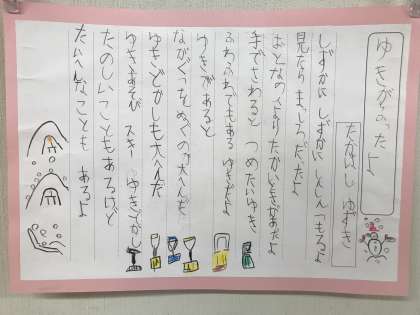 ゆきがふったよ
たかはし ゆずき
しずかに しずかに しんしんつもるよ
見たら まっしろだったよ
おとなの人より たかいときがあったよ
手でさわると つめたいゆき
ふわふわでもある ゆきだよ
ゆきがあると
ながぐつをぬぐのが大へんだ
ゆきどかしも大へんだ
ゆきあそび スキー ゆきどかし
たのしいこともあるけど
たいへんなことも あるよ